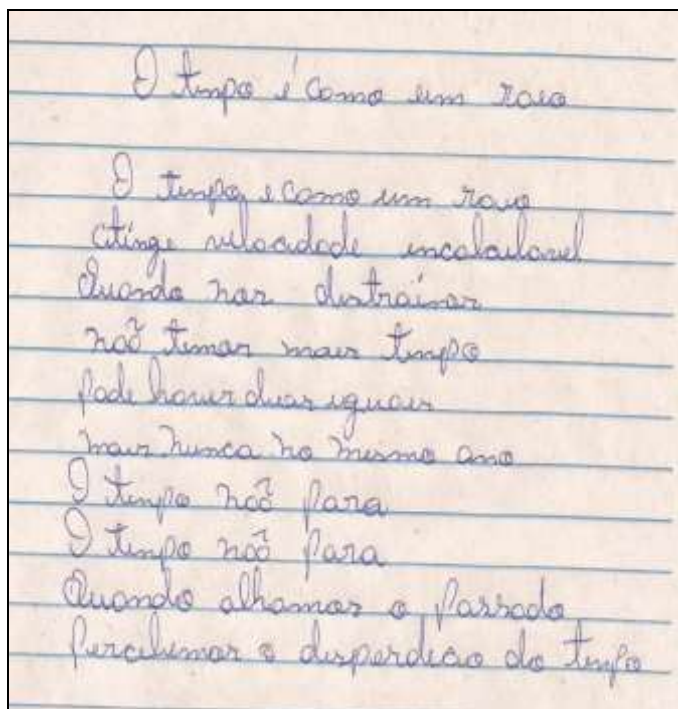 O tempo é como um raio
O tempo, e como um raio
atinge velocidade incalculavel
Quando nos distraimos
não temos mais tempo
pode haver duas iguais
mais nunca no mesmo ano
O tempo não para
O tempo não para
Quando olhamos o passado
percebemos o disperdicio do tempo